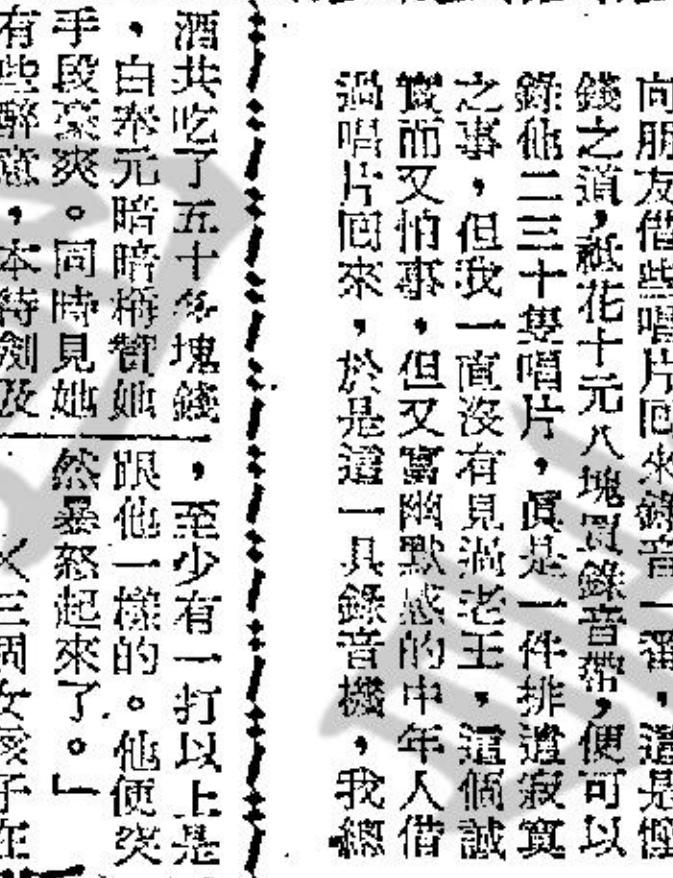 向朋友借些唱片回來錄音一番,這是慳
錢之道,祗花十元八塊買錄音帶,便可以
錄他二三十隻唱片,眞是一件排遣寂寞
之事,但我一直沒有見過老王,這個誠
實而又怕事,但又富幽默感的中年人借
過唱片回來,於是這一具錄音機,我總
酒共吃了五十多塊錢
,白奉元暗暗稱讚她
手段豪爽。同時見她
有些醉意,本待劍及
,至少有一打以上是
跟他一樣的。他便突
然暴怒起來了。」
三個女孩子在